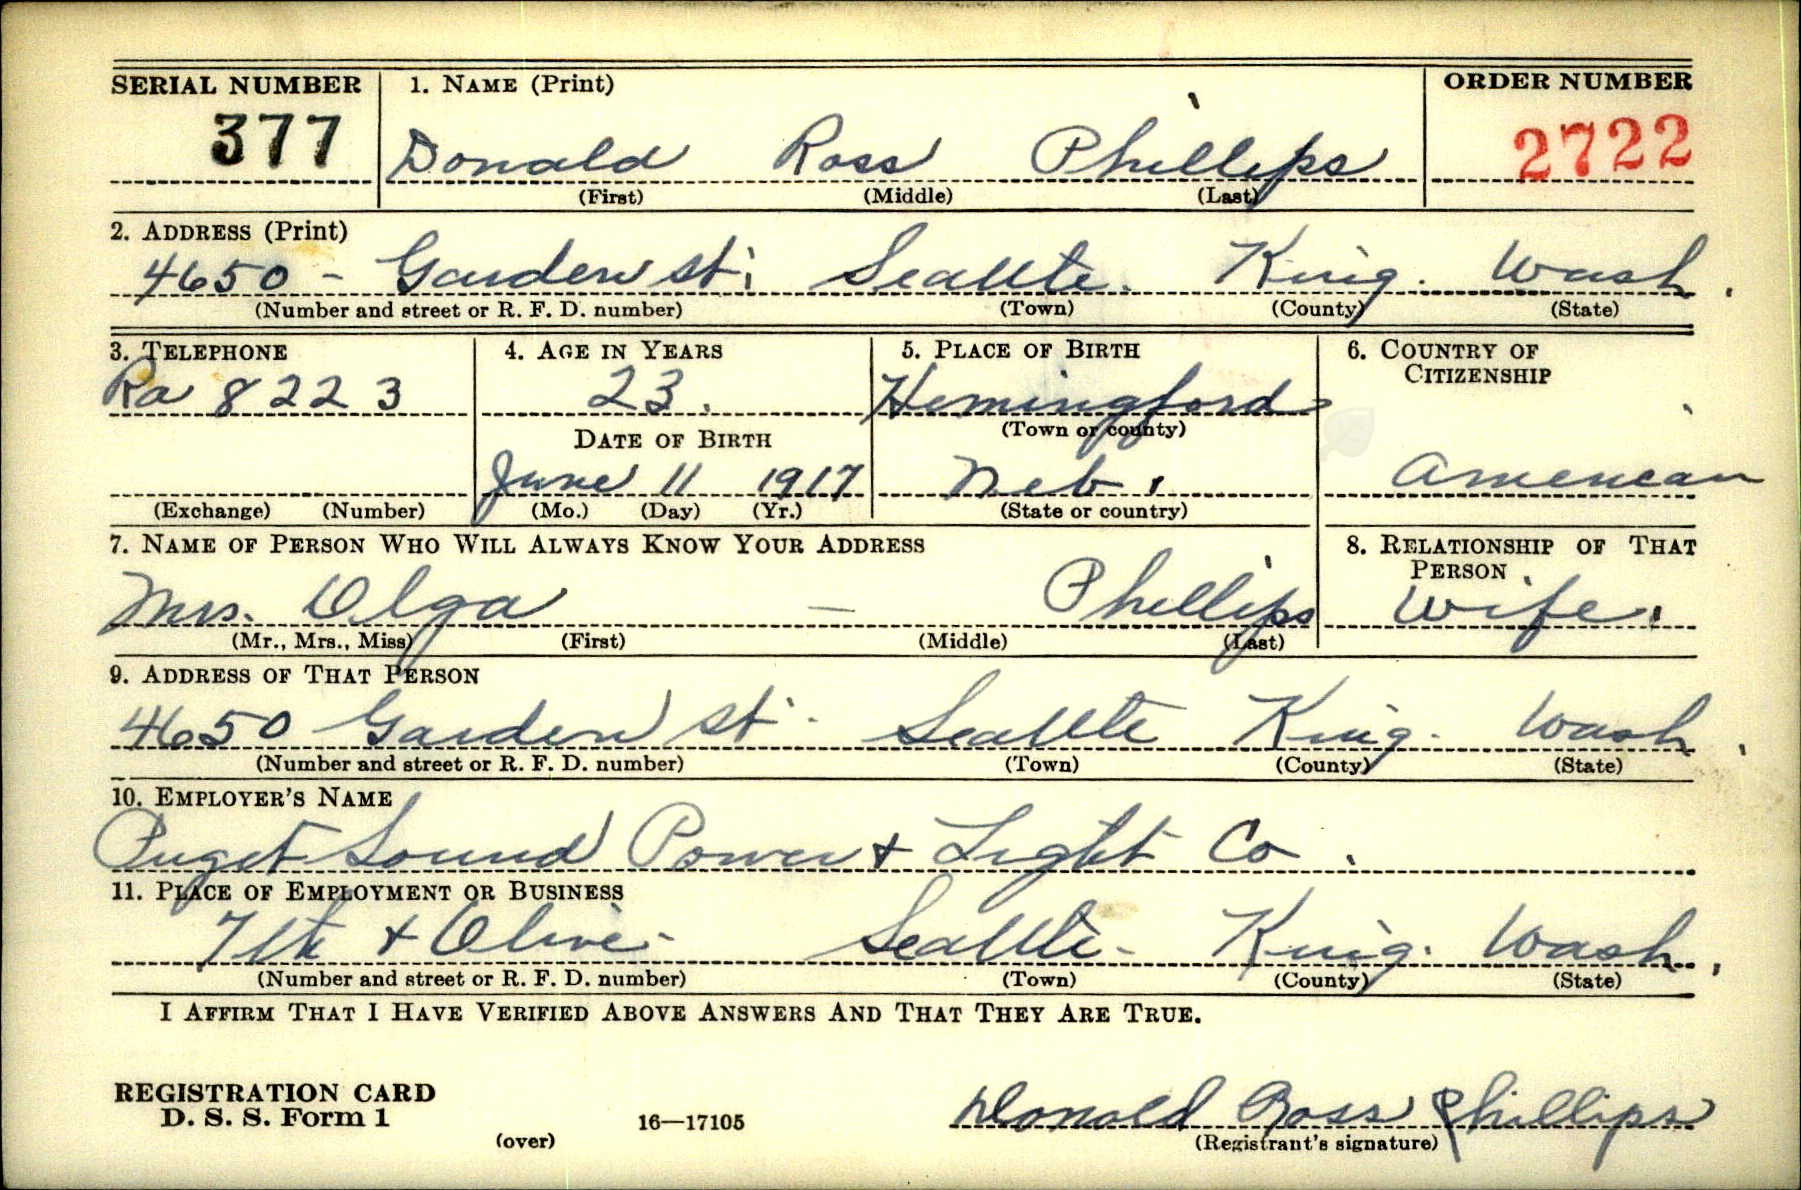 SERIAL NUMBER 1. NAME (Print) ORDER NUMBER
377 Donald Ross Phillips 2722
(First) (Middle) (Last)
2. ADDRESS (Print)
4650 - Garden St. Seattle. King. Wash.
(Number and street or R. F. D. number) (Town) (County) (State)
3. TELEPHONE 4. AGE IN YEARS 5. PLACE OF BIRTH 6. COUNTRY OF
CITIZENSHIP
Ra 8223 23. Hemingford
(Town or county)
DATE OF BIRTH
June 11 1917 Neb. American
(Exchange) (Number) (Mo.) (Day) (Yr.) (State or country)
7. NAME OF PERSON WHO WILL ALWAYS KNOW YOUR ADDRESS 8. RELATIONSHIP OF THAT
PERSON
Mrs. Olga — Phillips Wife.
(Mr., Mrs., Miss) (First) (Middle) (Last)
9. ADDRESS OF THAT PERSON
4650 Garden St. Seattle King. Wash.
(Number and street or R. F. D. number) (Town) (County) (State)
10. EMPLOYER'S NAME
Puget Sound Power & Light Co.
11. PLACE OF EMPLOYMENT OR BUSINESS
7th & Olive - Seattle - King. Wash.
(Number and street or R. F. D. number) (Town) (County) (State)
I AFFIRM THAT I HAVE VERIFIED ABOVE ANSWERS AND THAT THEY ARE TRUE.
REGISTRATION CARD
D. S. S. Form 1 16—17105 Donald Ross Phillips
(over) (Registrant's signature)